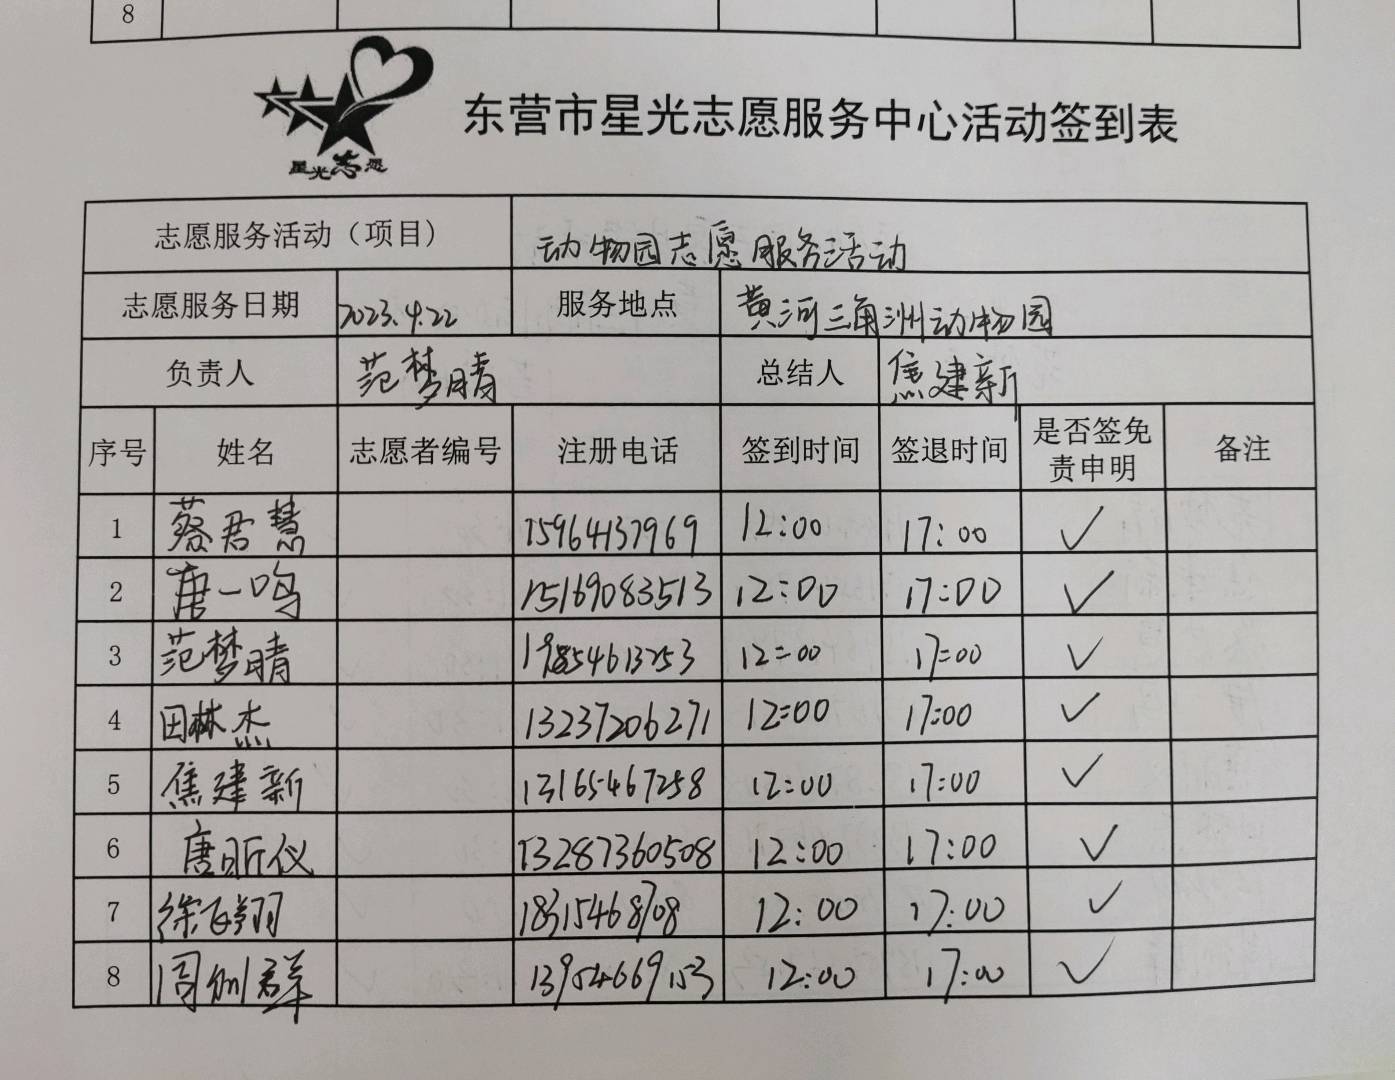 8
星光志愿
东营市星光志愿服务中心活动签到表
志愿服务活动（项目） 动物园志愿服务活动
志愿服务日期 2023.4.22 服务地点 黄河三角洲动物园
负责人 范梦晴 总结人 焦建新
序号 姓名 志愿者编号 注册电话 签到时间 签退时间 是否签免责申明 备注
1 蔡君慧 15964137969 12:00 17:00 ✓
2 唐一鸣 15169083513 12:00 17:00 ✓
3 范梦晴 19854613253 12:00 17:00 ✓
4 田林杰 13237206271 12:00 17:00 ✓
5 焦建新 13165467258 12:00 17:00 ✓
6 唐昕仪 13287360508 12:00 17:00 ✓
7 徐飞翔 18315468708 12:00 17:00 ✓
8 周刚群 13954669153 12:00 17:00 ✓